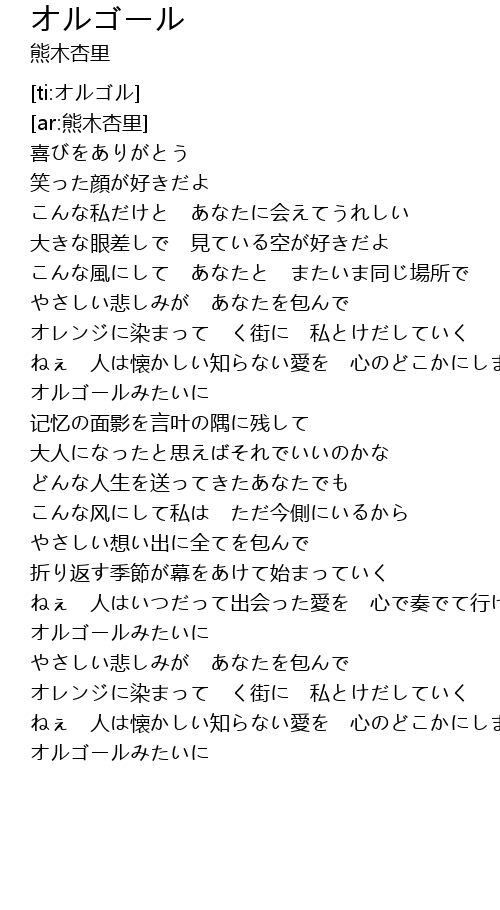 オルゴール
熊木杏里
[ti:オルゴル]
[ar:熊木杏里]
喜びをありがとう
笑った顔が好きだよ
こんな私だけと　あなたに会えてうれしい
大きな眼差しで　見ている空が好きだよ
こんな風にして　あなたと　またいま同じ場所で
やさしい悲しみが　あなたを包んで
オレンジに染まって　く街に　私とけだしていく
ねぇ　人は懐かしい知らない愛を　心のどこかにしま
オルゴールみたいに
记忆の面影を言叶の隅に残して
大人になったと思えばそれでいいのかな
どんな人生を送ってきたあなたでも
こんな风にして私は　ただ今側にいるから
やさしい想い出に全てを包んで
折り返す季節が幕をあけて始まっていく
ねぇ　人はいつだって出会った愛を　心で奏でて行け
オルゴールみたいに
やさしい悲しみが　あなたを包んで
オレンジに染まって　く街に　私とけだしていく
ねぇ　人は懐かしい知らない愛を　心のどこかにしま
オルゴールみたいに